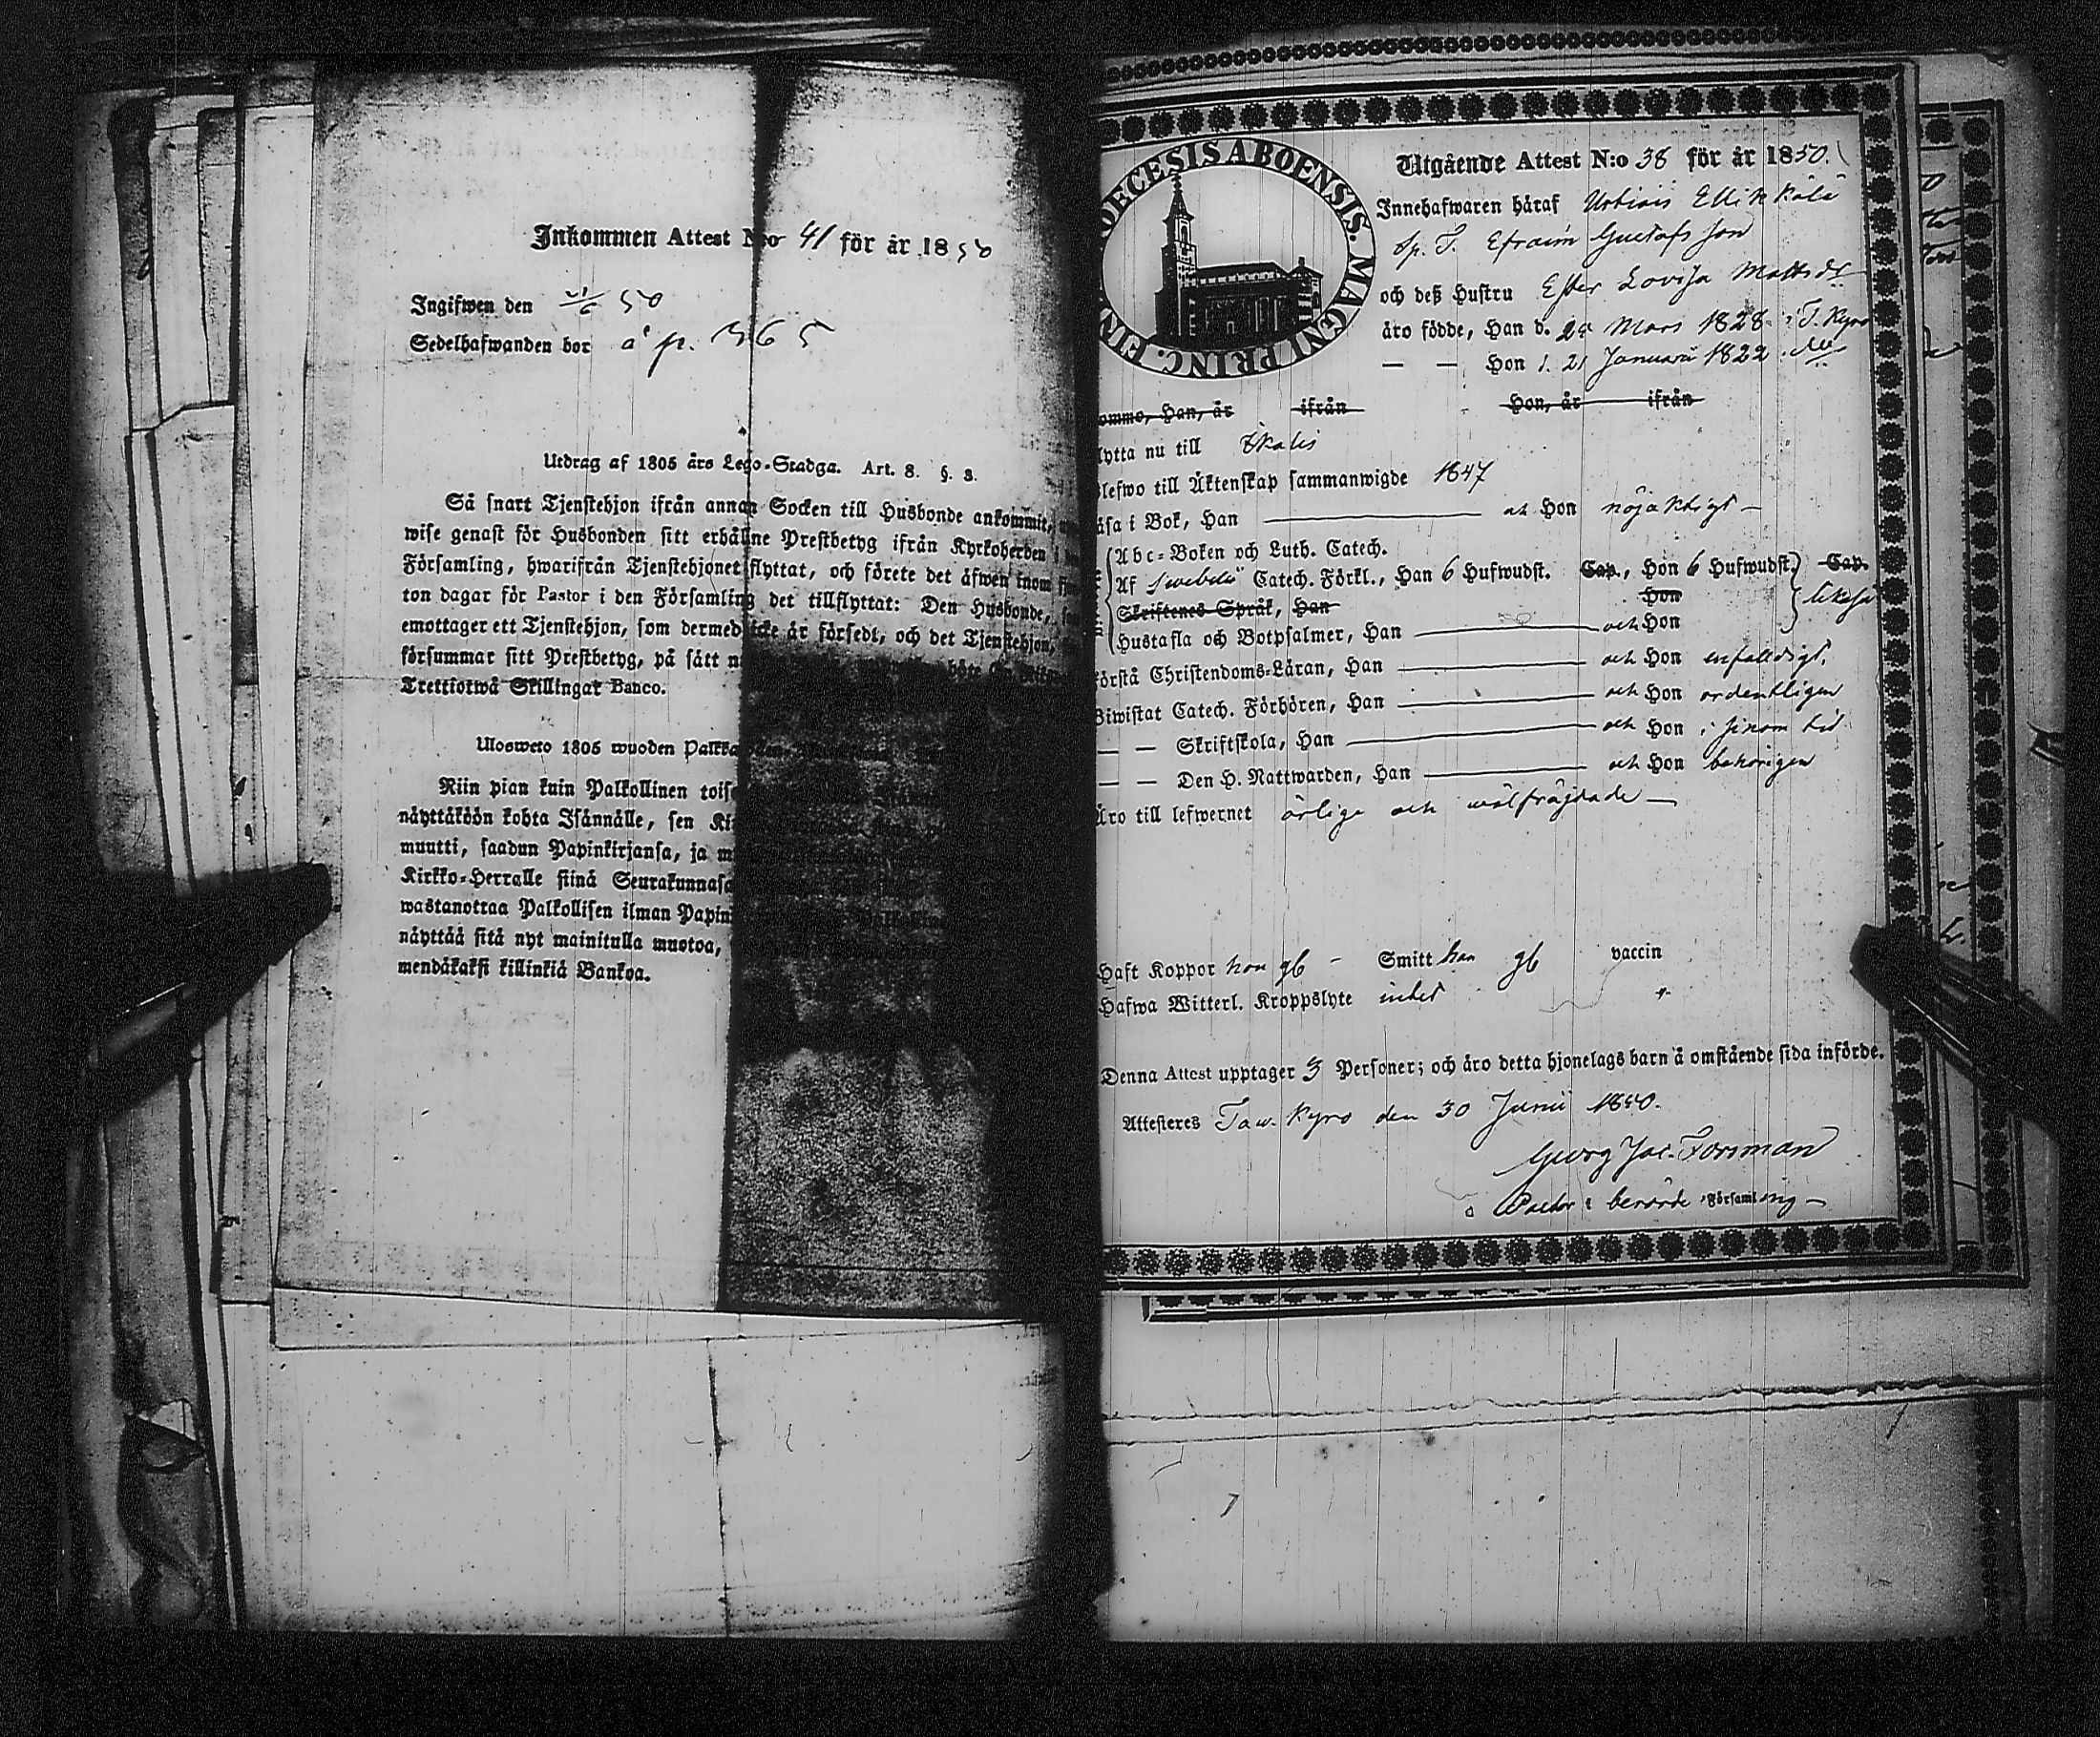 Inkommen Attest N:o 41 för år 1850
Ingifwen den 50
Sedelhafwanden bor å p. 365
Utdrag af 1805 års Lego-Stadga. Art. 8. §. 3.
Så snart Tjenstehjon ifrån annan Socken till Husbonde ankommit,
wise genast för Husbonden sitt erhållne Prestbetyg ifrån Kyrkoherden i
Församling, hwarifrån Tjenstehjonet flyttat, och förete det äfwen inom
ton dagar för Pastor i den Församling det tillflyttat: Den Husbonde,
emottager ett Tjenstehjon, som dermed icke är försedt, och det Tjenstehjon,
försummar sitt Prestbetyg, på sätt
Trettiotwå Skillingar Banco.
Ulosweto 1805 wuoden
Niin pian kuin Palkollinen
näyttäköön kohta Isännälle, sen
muutti, saadun Papinkirjansa, ja
Kirkko-Herralle siinä
wastanottaa Palkollisen ilman
näyttää sitä nyt mainitulla muotoa,
mendäkaksi killinkiä Bankoa.
DIOECESIS ABOENSIS. MAGNI PRINC.
Utgående Attest N:o 38 för år 1850.
Innehafwaren håraf
Sp. T. Efraim Gustafsson
och deß Hustru Ester Lovisa Mattsdr
äro födde, Han d. Mars 1828 i T. Kyro
— — Hon d. 21 Januarii 1822
Han, år ifrån Hon, år ifrån
nu till Ikalis
till Äktenskap sammanwigde 1847
i Bok, Han — och Hon nöjaktigt —
Abc-Boken och Luth. Catech.
Af Swebelii Catech. Förkl., Han 6 Hufwudst. Cap., Hon 6 Hufwudst. Cap.
Skriftenes Språk, Han Hon likaså
Hustafla och Botpsalmer, Han — och Hon
Förstå Christendoms-Läran, Han — och Hon enfaldigt.
Biwistat Catech. Förhören, Han — och Hon ordentligen
— — Skriftskola, Han — och Hon i sinom tid
— — Den H. Nattwarden, Han — och Hon behörigen
Äro till lefwernet ärlige och wälfräjdade —
Haft Koppor hon gb - Smitt han gb vaccin
Hafwa Witterl. Kroppslyte intet
Denna Attest upptager 3 Personer; och äro detta hjonelags barn å omstående sida införde.
Attesteres Taw. Kyro den 30 Junii 1850.
Georg Jac. Forsman
Pastor i berörde Församling —